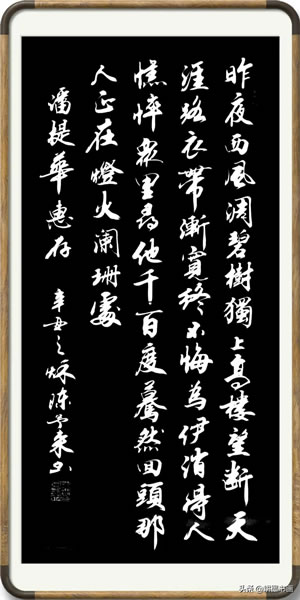 昨夜西風凋碧樹獨上高樓望斷天
涯路衣帶漸寬終不悔為伊消得人
憔悴衆里尋他千百度驀然回頭那
人正在燈火闌珊處
潘提華惠存
辛丑之秋陳來書
头条